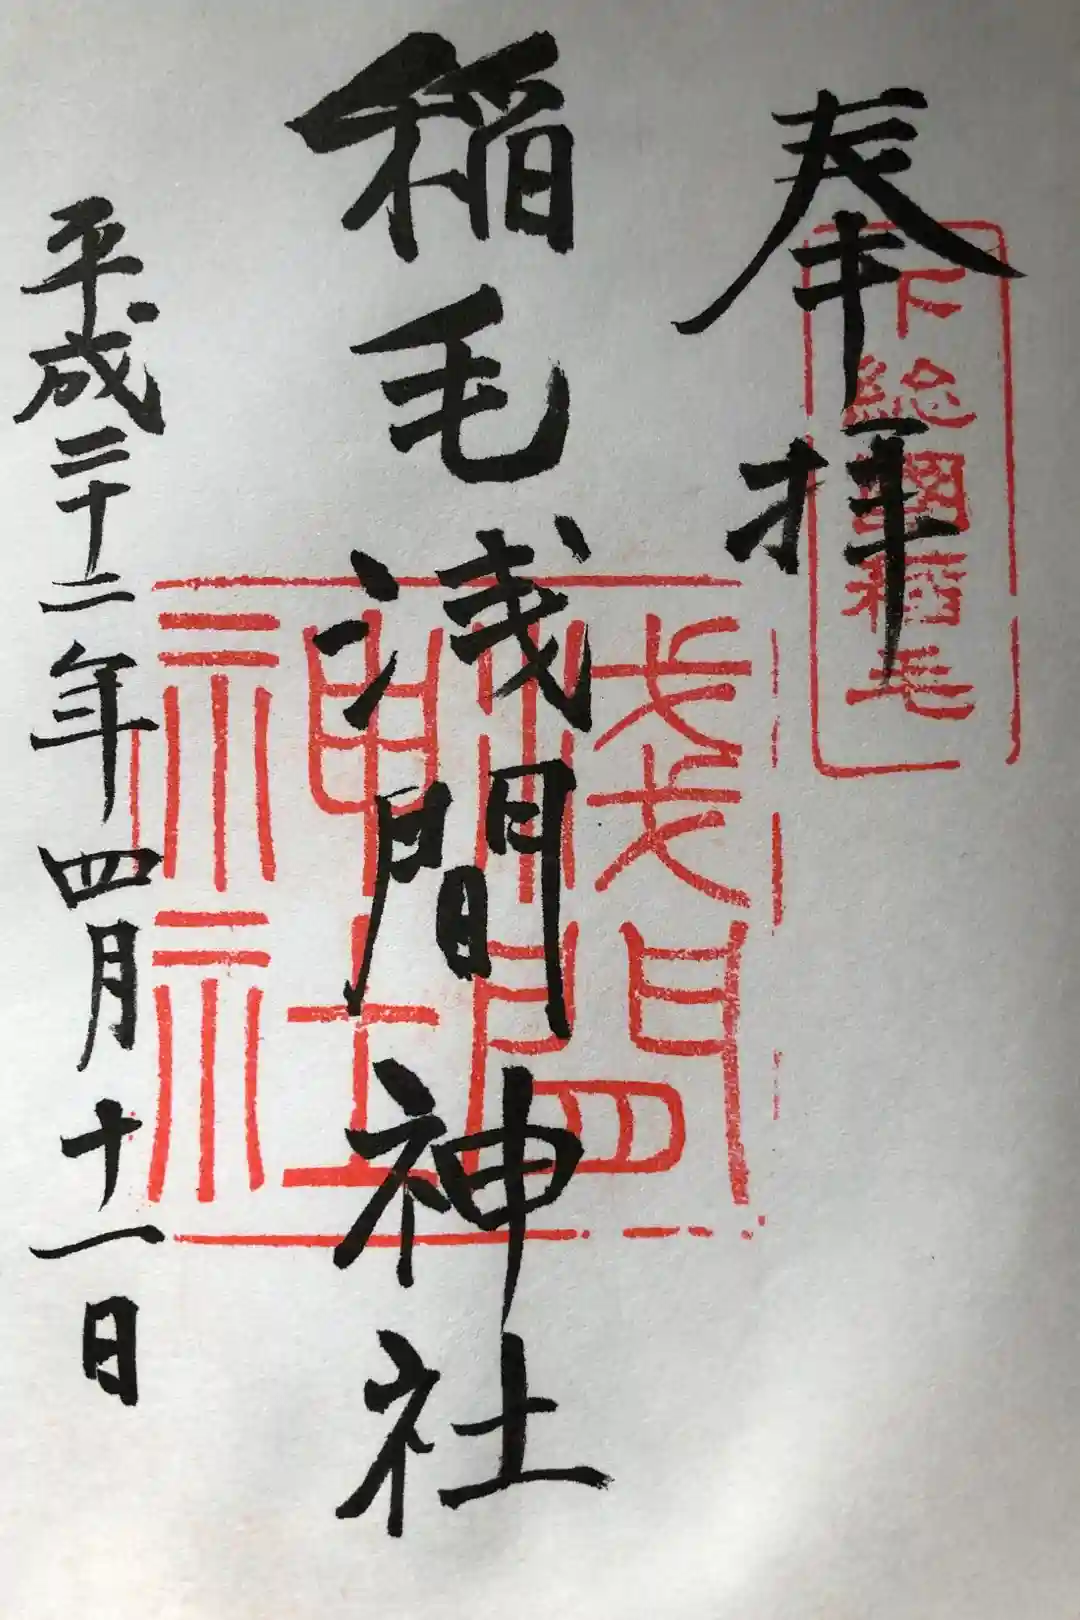 奉拝
下総國稲毛
稲毛浅間神社
淺間
神社
平成二十二年四月十一日